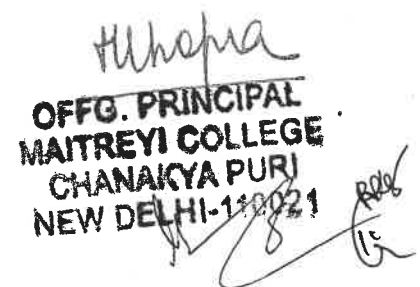 OFFG. PRINCIPAL
MAITREYI COLLEGE
CHANAKYA PURI
NEW DELHI-110021